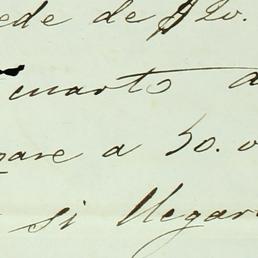 ede de $20.
cuarto a
pare a 50. o
si llegar